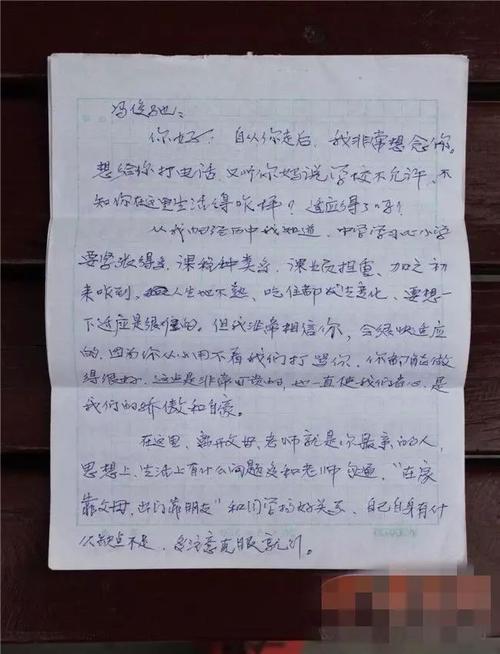 冯俊驰：
你好！自从你走后，我非常想念你。
想给你打电话，又听你妈说学校不允许，不
知你在这里生活得咋样？适应得了吗？
从我的经历中我知道，中学学习比小学
要紧张得多，课程种类多，课业负担重，加之初
来咋到，人生地不熟，吃住都发生变化，要想一
下适应是很难的。但我非常相信你，会很快适应
的，因为你从小用不着我们打骂你，你都能做
得很好，这些是非常可贵的，也一直使我们省心，是
我们的骄傲和自豪。
在这里，离开父母，老师就是你最亲的人，
思想上、生活上有什么问题多和老师沟通，“在家
靠父母，出门靠朋友”和同学搞好关系，自己自身有什
么缺点不足，多注意克服就行。